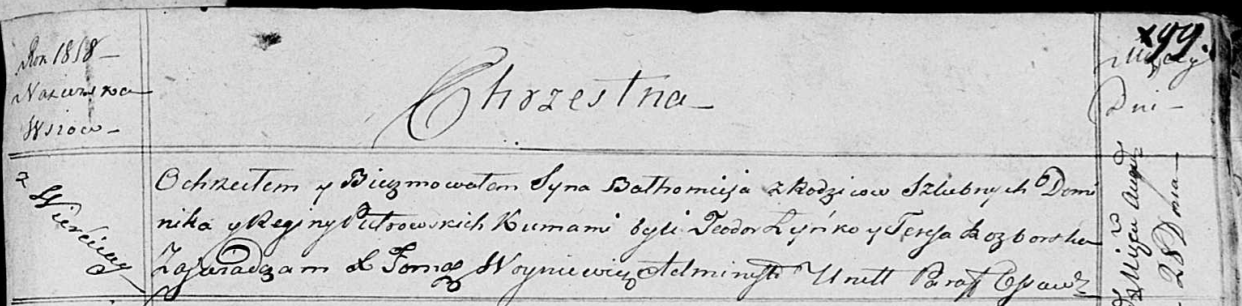 Rok 1818
Nazwiska
Wsiow
Chrzestna
99.
Dni
z
Ochrzciłem y Bierzmowałem Syna Bathomieja z Rodzicow Szlubnych Domi
nika y Reginy Putrowskich Kumami byli Teodor Łyńko y Teresa Rozborska
Zaswiadczam X Tomasz Woyniewicz Adminystr Unett Paraf
w Miescu August
28 Dnia